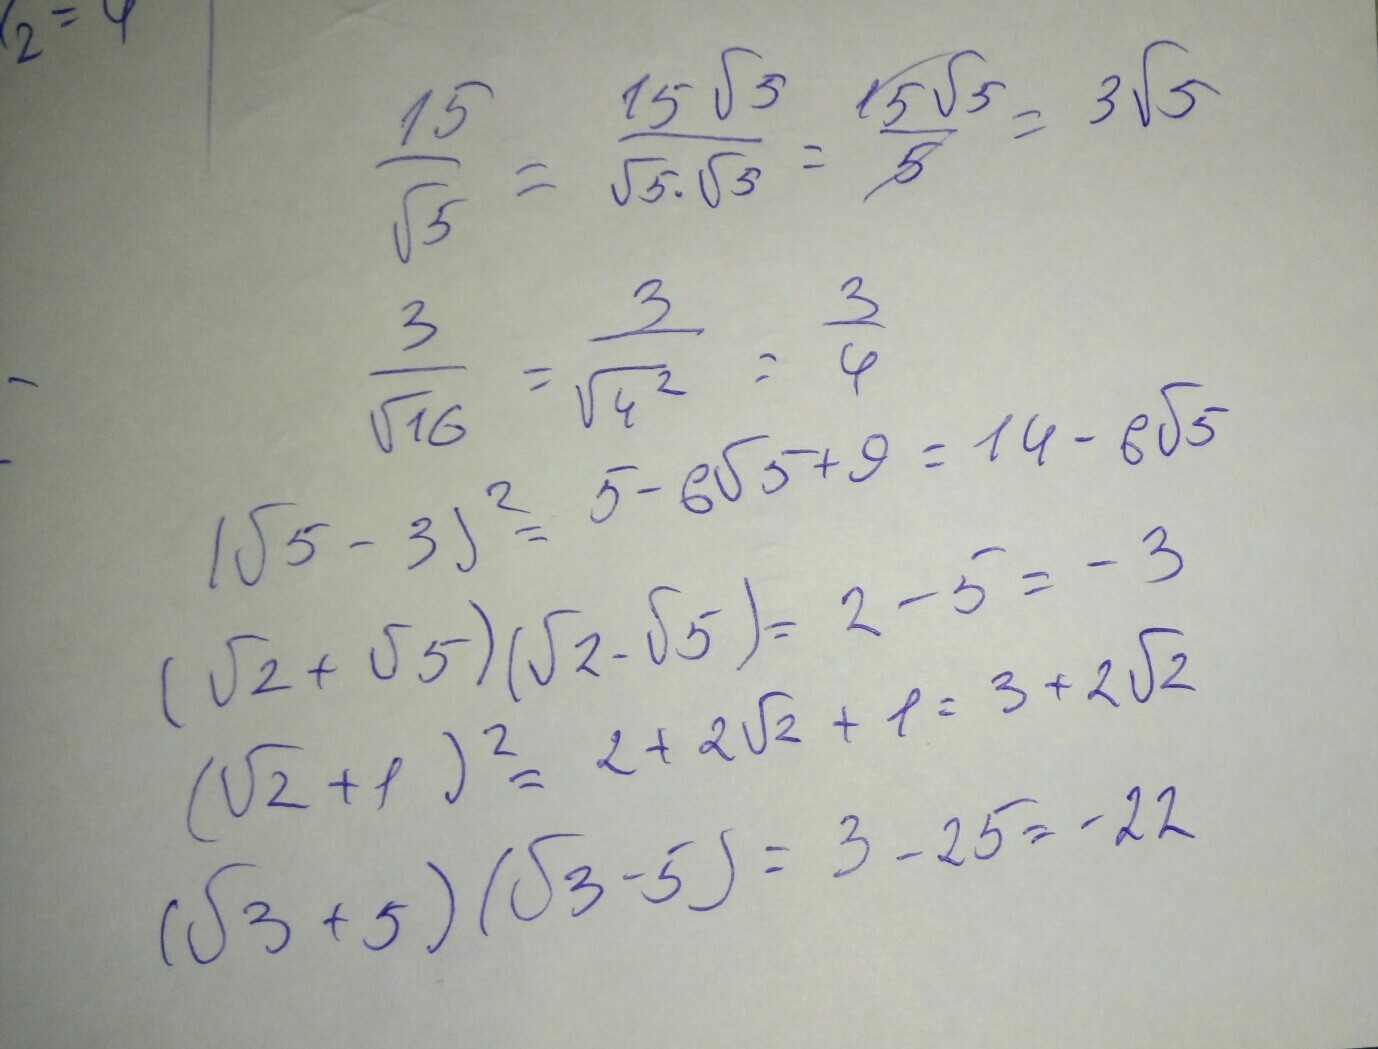 2 = 4
15/√5 = 15√5/√5·√5 = 15√5/5 = 3√5
3/√16 = 3/√4² = 3/4
(√5 - 3)² = 5 - 6√5 + 9 = 14 - 6√5
(√2 + √5)(√2 - √5) = 2 - 5 = - 3
(√2 + 1)² = 2 + 2√2 + 1 = 3 + 2√2
(√3 + 5)(√3 - 5) = 3 - 25 = -22